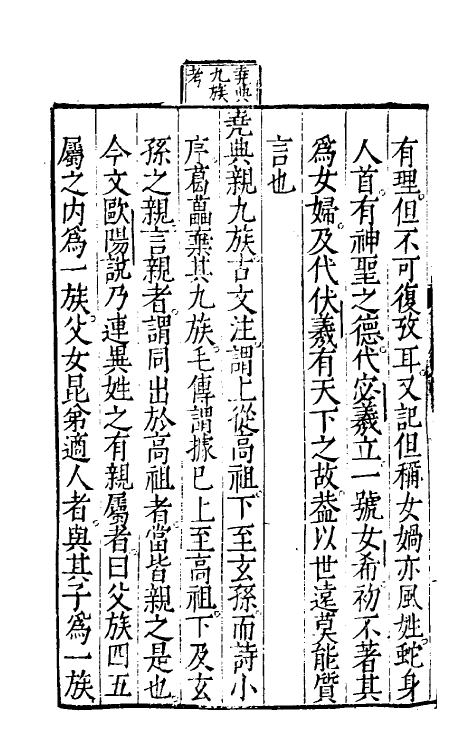 堯典
九族
考
有理但不可復攷耳又記但稱女媧亦風姓蛇身
人首有神聖之德代宓羲立一號女希初不著其
爲女婦及代伏羲有天下之故葢以世遠莫能質
言也
堯典親九族古文注謂上從高祖下至玄孫而詩小
序葛藟棄其九族毛傳謂據巳上至高祖下及玄
孫之親言親者謂同出於高祖者當皆親之是也
今文歐陽說乃連異姓之有親屬者曰父族四五
屬之內爲一族父女昆弟適人者與其子爲一族